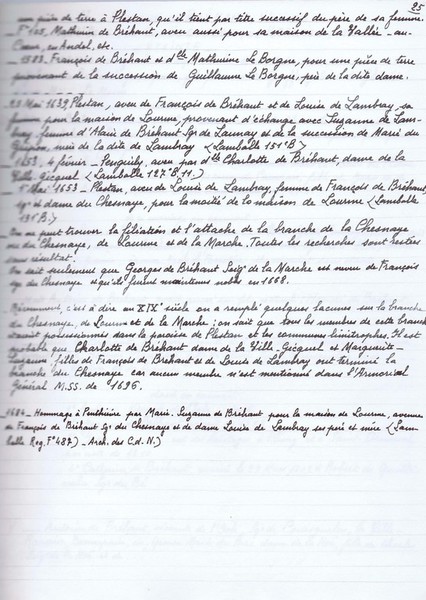 95
une pièce de terre à Plestan, qu'il tient par titre successif du père de sa femme.
_ F° 105, Mathurin de Bréhant, aveu aussi pour sa maison de la Vallée - au-
Coeur, en Andel, etc.
_ 1583. François de Bréhant et dlle Mathurine Le Borgne, pour une pièce de terre
provenant de la succession de Guillaume Le Borgne, père de la dite dame.
23 Mai 1639, Plestan, aveu de François de Bréhant et de Louise de Lambray, sa
femme pour la maison de Lourme, provenant d'échange avec Suzanne de Lam-
bray, femme d'Alain de Bréhant Sgr de Launay et de la succession de Marie du
mère de la dite de Lambray (Lamballe 151° B)
_ 1653, 4 février - aveu par dlle Charlotte de Bréhant, dame de la
Ville Gicquel (Lamballe 127° B, 11.)
_ 5 Mai 1653 - Plestan, aveu de Louise de Lambray, femme de François de Bréhant,
sgr et dame du Chesnaye, pour la moitié de la maison de Lourme (Lamballe
195 B.)
On ne peut trouver la filiation et l'attache de la branche de la Chesnaye
ou du Chesnaye, de Lourme et de la Marche. Toutes les recherches sont restées
sans résultat.
On sait seulement que Georges de Bréhant Seigr de la Marche est neveu de François
sgr du Chesnaye et qu'ils furent maintenus nobles en 1668.
Récemment, c'est à dire au XIXe siècle on a remplé quelques lacunes sur la branche
du Chesnaye, de Lourme et de la Marche ; on sait que tous les membres de cette branche
étaient possessionnés dans la paroisse de Plestan et les communes limitrophes. Il est
probable que Charlotte de Bréhant dame de la Ville-Gicquel et Marguerite-
Suzanne, filles de François de Bréhant et de Louise de Lambray ont terminé la
branche du Chesnaye car aucun membre n'est mentionné dans l'Armorial
Général M.SS. de 1696.
1684 - Hommage à Penthièvre par Marie Suzanne de Bréhant pour la maison de Lourme, advenue
de François de Bréhant Sgr du Chesnaye et de dame Louise de Lambray ses père et mère (Lam-
balle Reg. F° 487) - Arch. des C. d. N.)